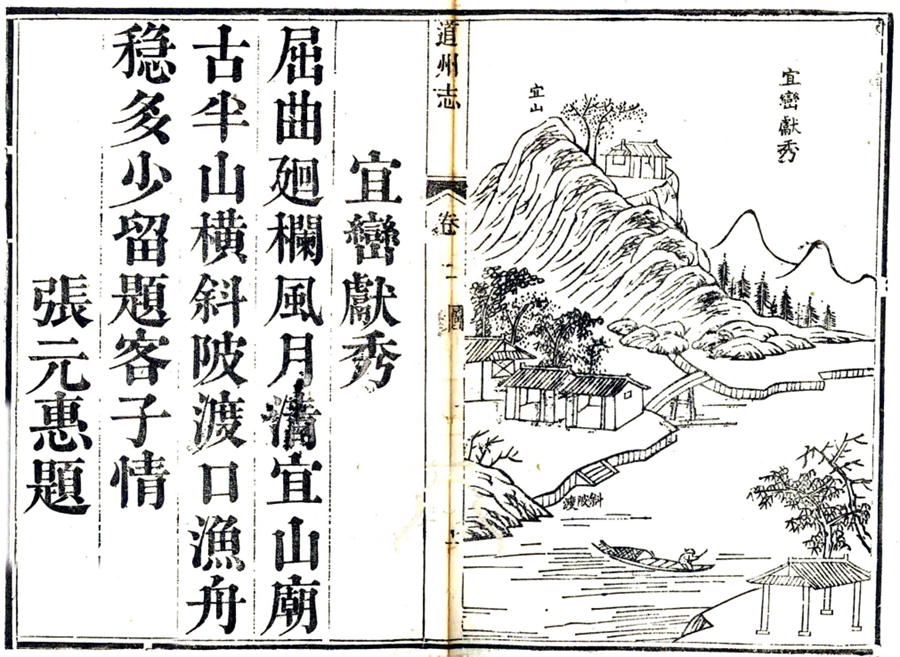 宜巒獻秀
宜山
斜陂渡
道州志
卷二
圖
宜巒獻秀
屈曲廻欄風月清宜山廟
古半山横斜陂渡口漁舟
穩多少留題客子情
張元惠題